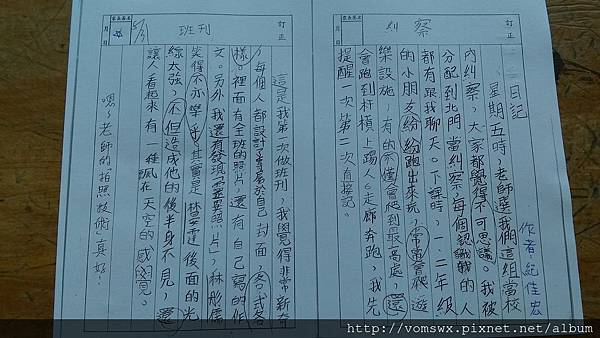 訂正
糾察
日記
作者:紀佳宏
星期五時,老師選我們這組當校
內糾察,大家都覺得不可思議。我被
分配到北門當糾察,每個認識的人
都有跟我聊天。下課時,一、二年級
的小朋友紛紛跑出來玩,常常會爬遊
樂設施,有的不僅會爬到最高處,還
會跑到杆槓上踢人。走廊奔跑,我先
提醒一次第二次直接記。
月 日
訂正
班刊
這是我第一次做班刊,我覺得非常新奇
,每個人都設計專屬於自己封面,各式各
樣,裡面有全班的照片,還有自己寫的作
文。另外,我還有發現「靈異照片」,林彤儒
笑得不亦樂乎,其實是林昱達後面的光
線太強,不但造成他的後半身不見,還
讓人看起來有一種飄在天空的感覺。
嗯~老師的拍照技術真好!
月 日
http://vomswx.pixnet.net/album